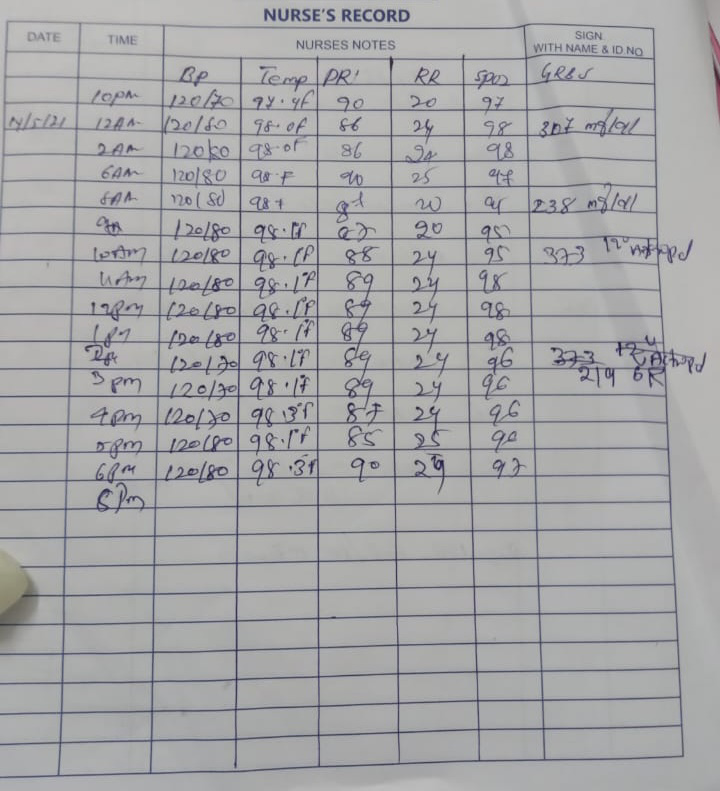 NURSE'S RECORD
DATE TIME NURSES NOTES SIGN WITH NAME & ID.NO
BP Temp PR RR SPO2 GRBS
10pm 120/70 97.4f 90 20 97
12AM 120/80 98.0f 86 24 98 307 mg/dl
2AM 120/80 98.0f 86 98
6AM 120/80 98.F 90 25 97
8AM 120/80 98 20 238 mg/dl
120/80 98.1f 20 95
10Am 120/80 98.1f 88 24 95 373
11Am 120/80 98.1f 89 24 98
12pm 120/80 98.1f 89 24 98
1pm 120/80 98.1f 89 24 98
120/70 98.1f 89 24 96 373
3pm 120/70 98.1f 89 24 96 219
4pm 120/70 98.3f 87 24 96
5pm 120/80 98.1f 85 25
6pm 120/80 98.3f 90 97